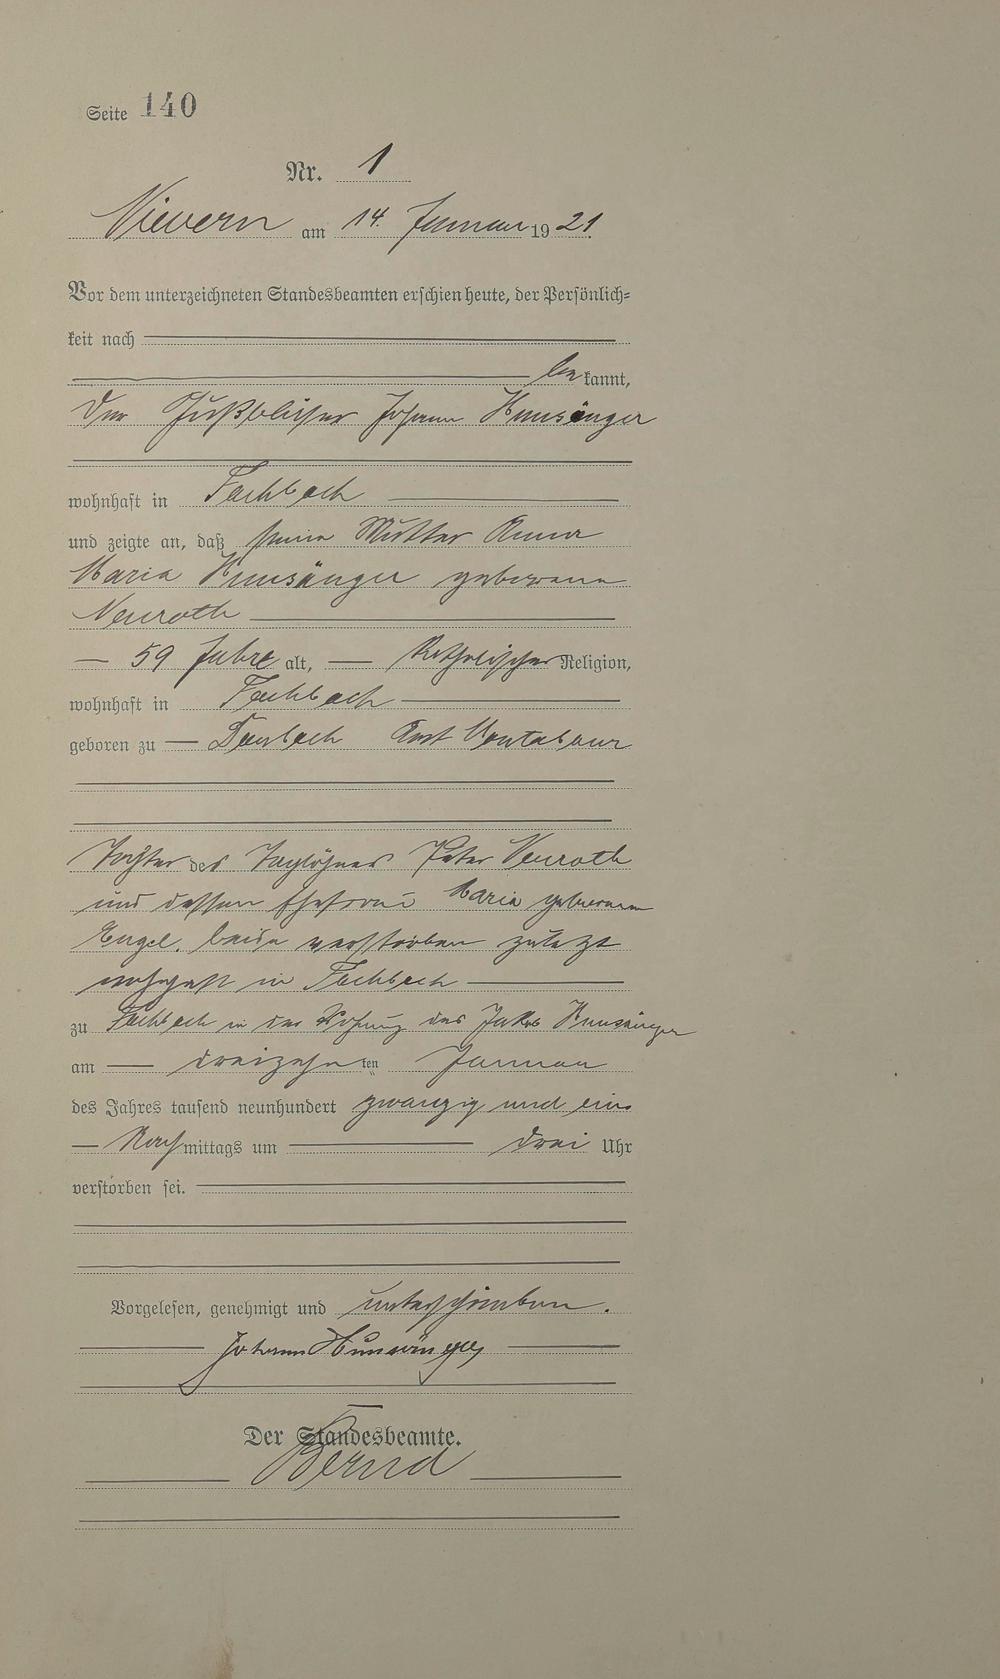 Seite 140
Nr. 1
Nievern am 14. Januar 1921.
Vor dem unterzeichneten Standesbeamten erschien heute, der Persönlich=
keit nach
bekannt,
der Johann Hunsänger
wohnhaft in Fachbach
und zeigte an, daß seine Mutter Anna
Maria Hunsänger geborene
Neuroth
59 Jahre alt, katholischer Religion,
wohnhaft in Fachbach
geboren zu Amt Montabaur
Tochter des Taglöhners Peter Neuroth
und dessen Ehefrau Maria geborene
Engel, beide verstorben zuletzt
wohnhaft in Fachbach
zu Fachbach in der Wohnung des Jakob Hunsänger
am dreizehnten Januar
des Jahres tausend neunhundert zwanzig und eins
Nachmittags um drei Uhr
verstorben sei.
Vorgelesen, genehmigt und unterschrieben.
Johann Hunsänger
Der Standesbeamte.
Bernd